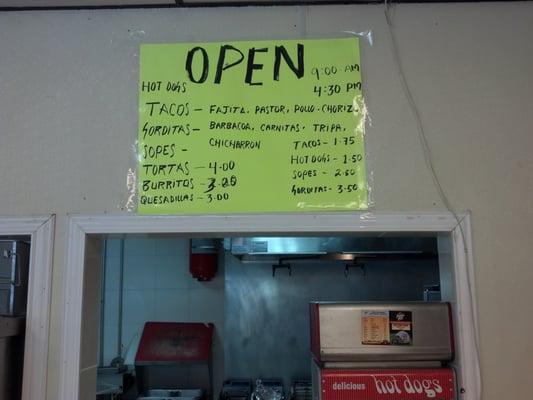 OPEN
9:00 AM
4:30 PM
HOT DOGS
TACOS - FAJITA, PASTOR, POLLO. CHORIZO
GORDITAS - BARBACOA, CARNITAS. TRIPA,
SOPES - CHICHARRON
TORTAS - 4.00
BURRITOS -
QUESADILLAS - 3.00
TACOS - 1.75
HOT DOGS - 1.50
SOPES - 2.50
GORDITAS - 3.50
delicious hot dogs